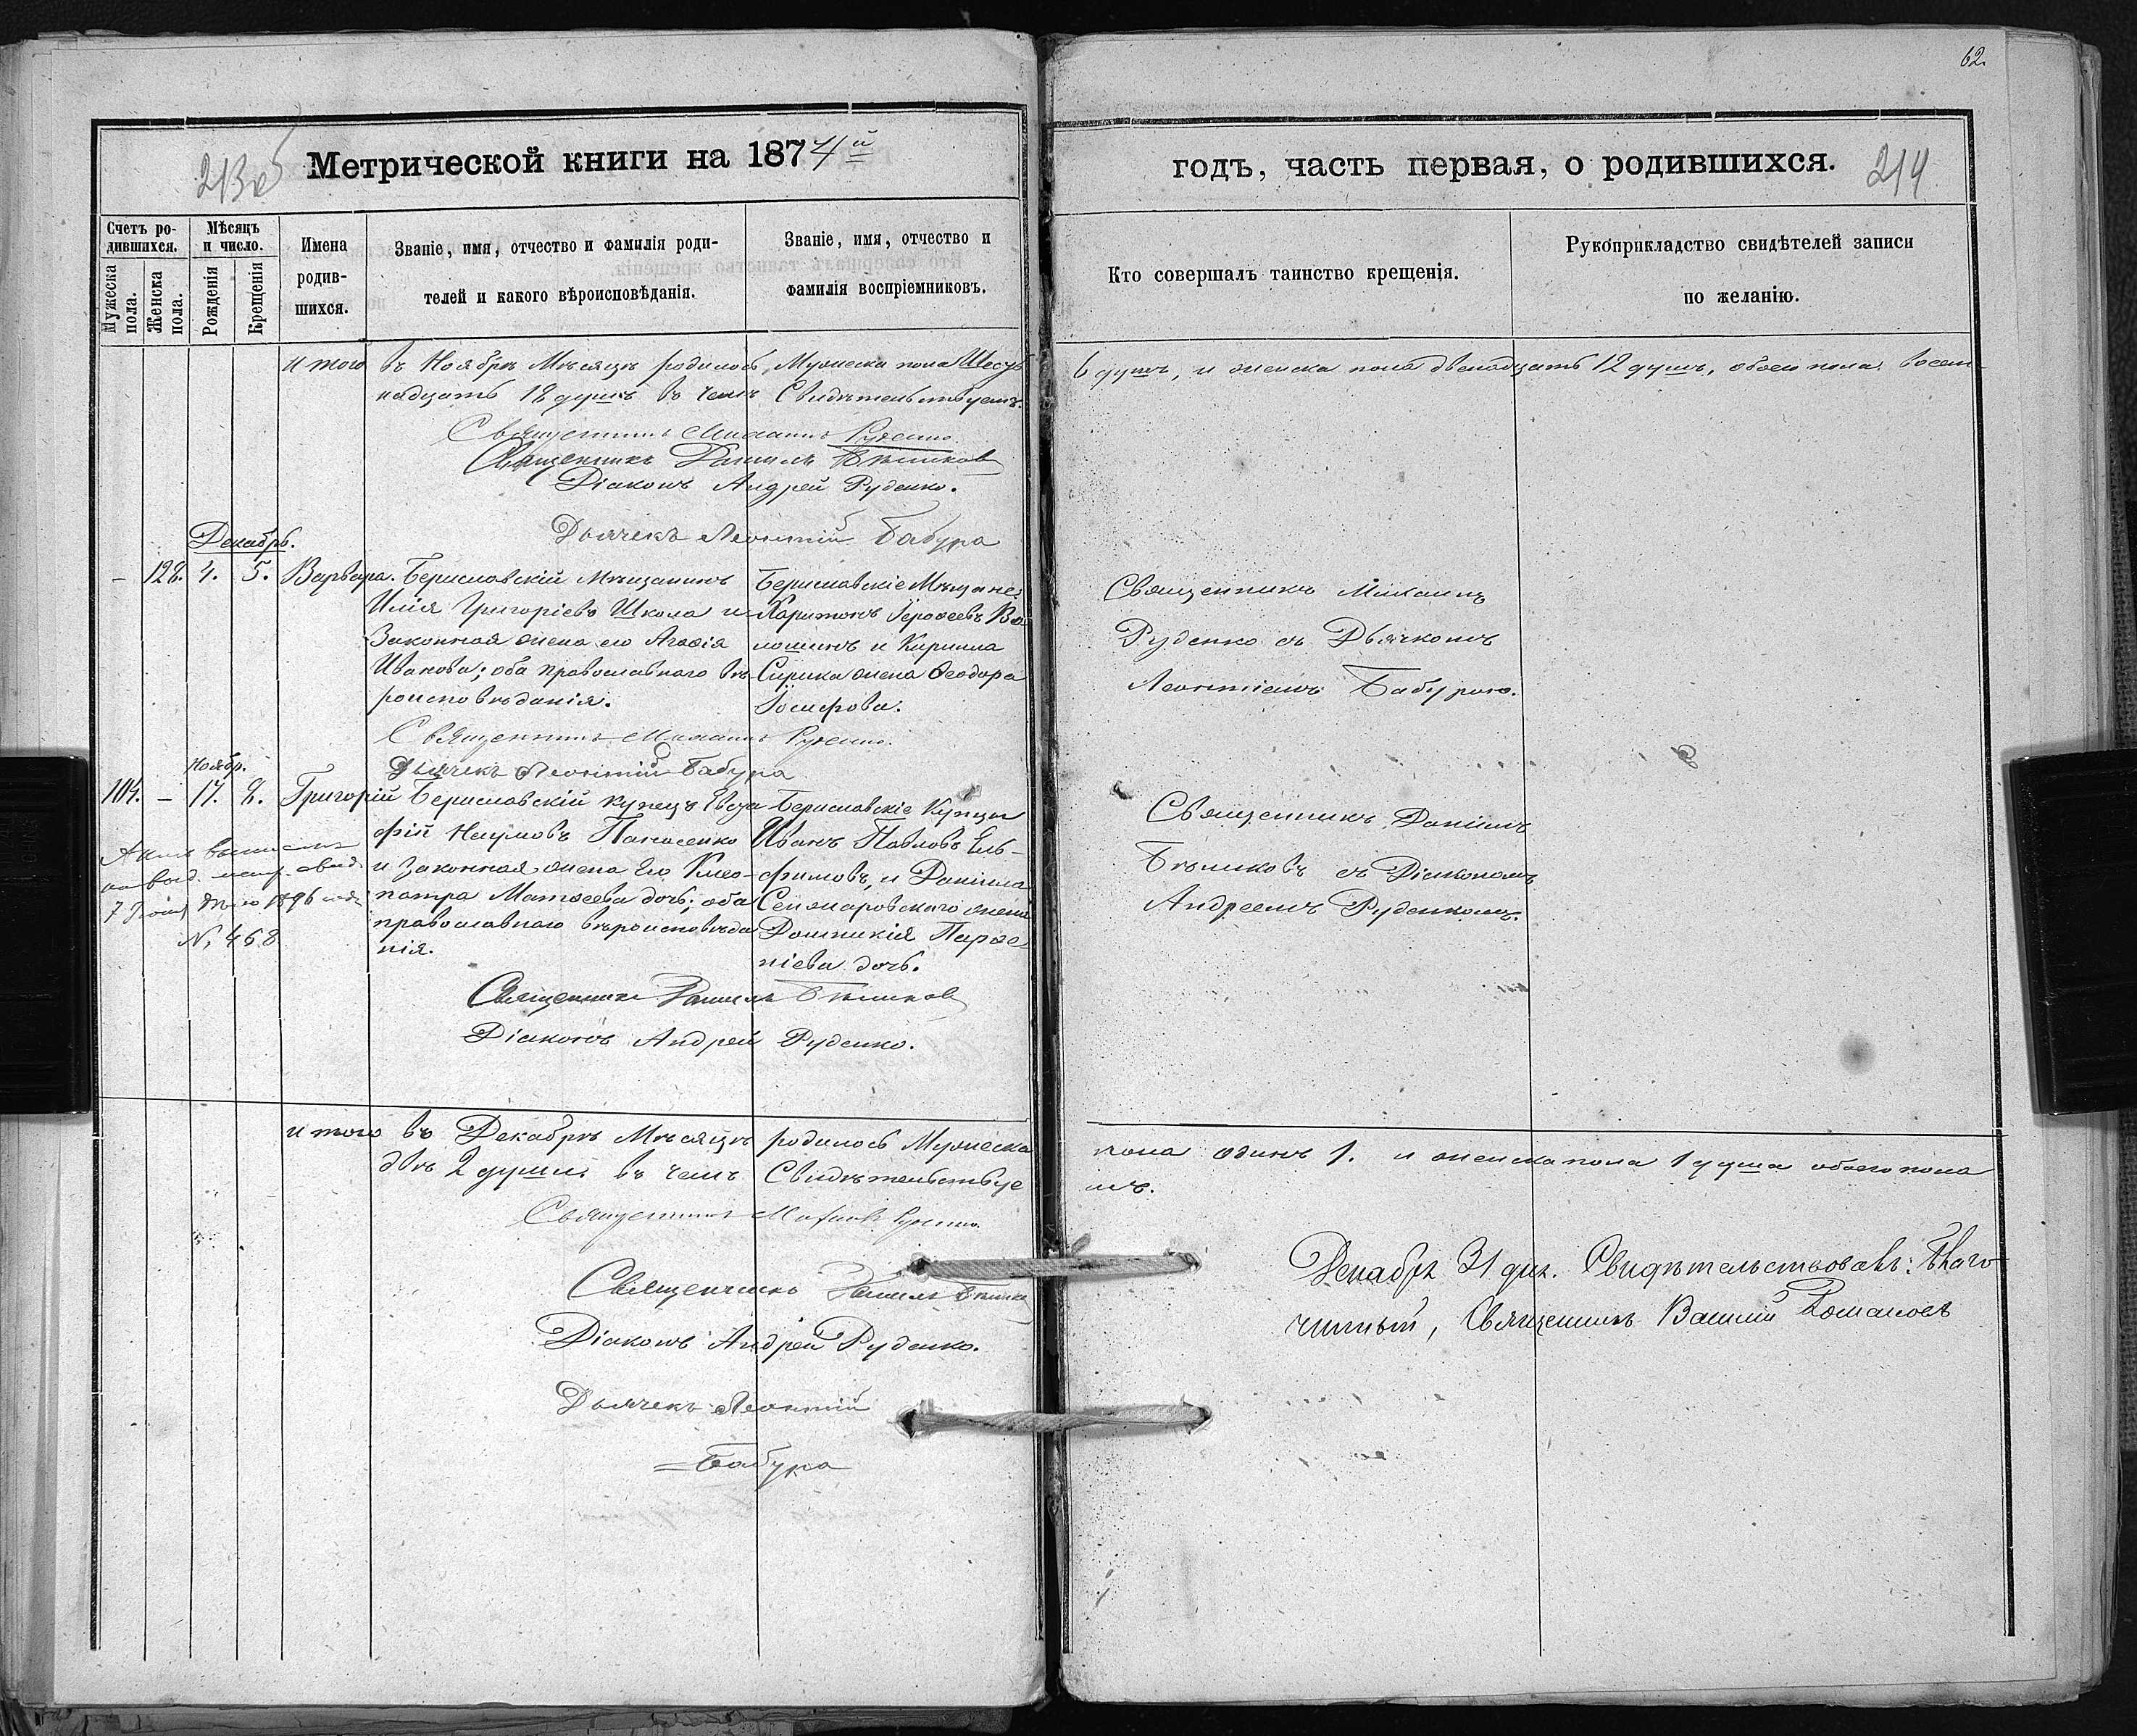 62.
213 об
Метрической книги на 1874й
годъ, часть первая, о родившихся.
214
Счетъ ро-
дившихся.
Мужеска пола.
Женска пола.
Мѣсяцъ
и число.
Рожденія
Крещенія
Имена
родив-
шихся.
Званіе, имя, отчество и фамилія роди-
телей и какого вѣроисповѣданія.
Званіе, имя, отчество и
фамилія воспріемниковъ.
Кто совершалъ таинство крещенія.
Рукоприкладство свидѣтелей записи
по желанію.
итого въ Ноябрѣ Мѣсяцѣ родилось, Мужеска пола Шесть
6 душъ, и женска пола двенадцать 12 душъ, обоего пола восем-
надцать 18 душъ въ чемъ Свидѣтельствуемъ.
Священникъ Михаилъ Руденко
Священникъ Даниилъ Бѣликовъ
Діаконъ Андрей Руденко.
Дьячекъ Леонтій Бабура
Декабрь.
– 128. 4. 5. Варвара.
Бериславскій Мѣщанинъ
Илія Григоріевъ Школа и
Законная жена его Агафія
Иванова; оба православнаго вѣ-
роисповѣданія.
Бериславскіе Мѣщане:
Харитонъ Іерофеевъ Во
лошинъ и Кирилла
Сирика жена Феодора
Іосифова.
Священникъ Михаилъ
Руденко съ Дьячкомъ
Леонтіемъ Бабурою.
Священникъ Михаилъ Руденко.
Дьячекъ Леонтій Бабура
Ноябр.
104. – 17. 8. Григорій
Бериславскій купецъ Евста
фій Наумовъ Панасенко
и Законная жена Его Клео-
патра Матфеева дочь; оба
православнаго вѣроисповѣда
нія.
Бериславскіе Купцы
Иванъ Павловъ Ель-
фимовъ, и Даніила
жена
Домникія Парфе-
ніева дочь.
Священникъ Даніилъ
Бѣликовъ съ Діакономъ
Андреемъ Руденкомъ.
7 1896 года
№ 468
Священникъ Даниилъ Бѣликовъ
Діаконъ Андрей Руденко.
итого въ Декабрѣ Мѣсяцѣ родилось Мужеска
пола одинъ 1. и женска пола 1 душа обоего пола
двѣ 2 души: въ чемъ Свидѣтельствуе
мъ.
Священникъ Михаилъ Руденко.
Священникъ Даниилъ Бѣлико
Діаконъ Андрей Руденко.
Дьячекъ Леонтій
Бабура
Декабря 31 дня. Свидѣтельствовалъ: Благо
чинный, Священникъ Василій Романовъ